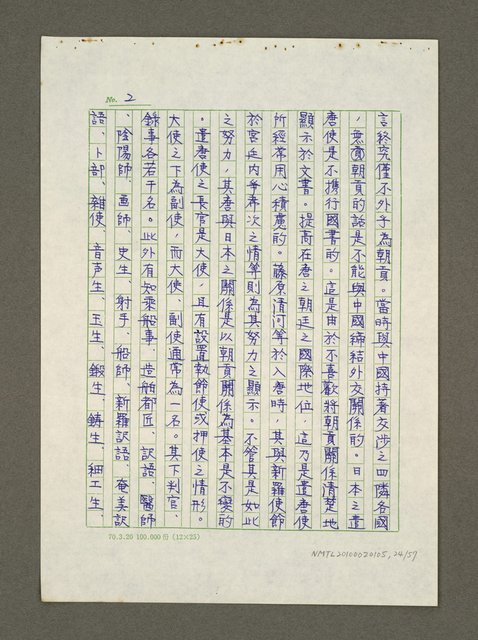 No. 2
言終究僅不外乎為朝貢。當時與中國持着交涉之四隣各國
，無朝貢的話是不能與中國締結外交關係的。日本之遣
唐使是不攜行國書的。這是由於不喜歡將朝貢關係清楚地
顯示於文書。提高在唐之朝廷之國際地位，這乃是遣唐使
所經常用心積慮的。藤原清河等於入唐時，其與新羅使節
於宮廷內爭席次之情等則為其努力之顯示。不管其是如此
之努力，其唐與日本之關係是以朝貢關係為基本是不變的
。遣唐使之長官是大使，且有設置執節使或押使之情形。
大使之下為副使，而大使、副使通常為一名。其下判官、
錄事各若干名。此外有知乘船事、造舶都匠、訳語、醫師
、陰陽師、畫師、史生、射手、船師、新羅訳語、奄美訳
語、卜部、雜使、音声生、玉生、鍛生、鑄生、細工生、
70.3.20 100.000份 (12×25)
NMTL20100020105, 24/57